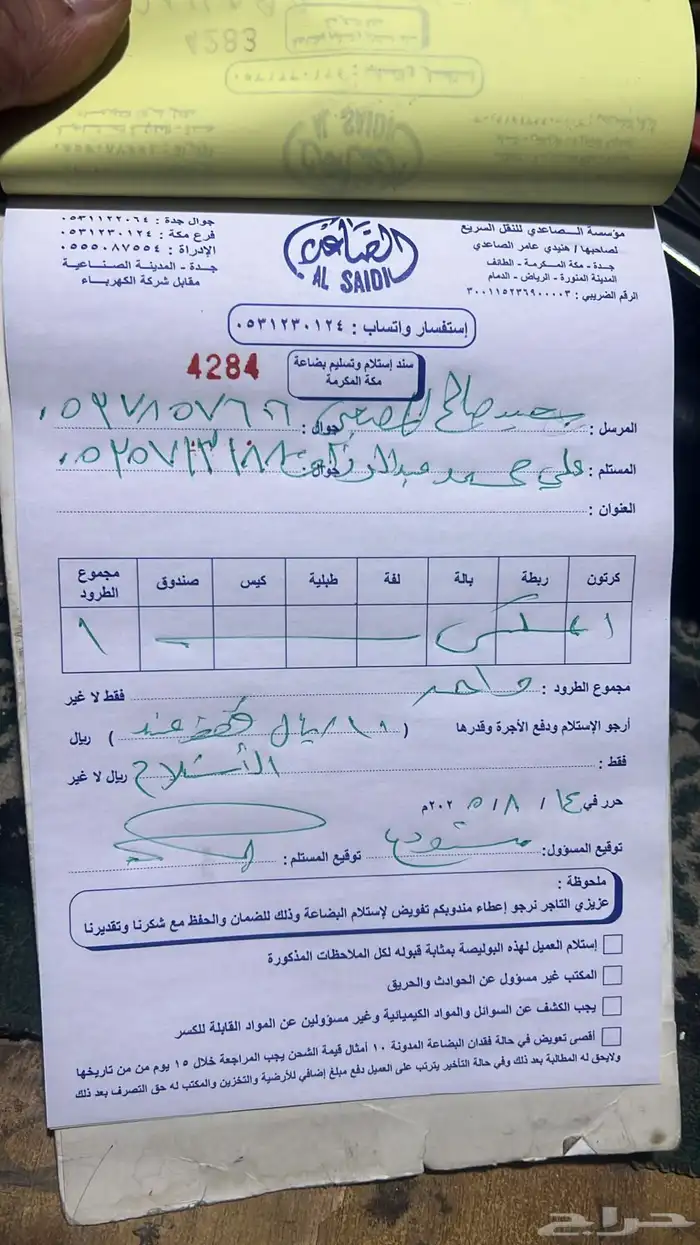 4283
مؤسسة الصاعدي للنقل السريع
لصاحبها / هنيدي عامر الصاعدي
جدة - مكة المكرمة - الطائف
المدينة المنورة - الرياض - الدمام
الرقم الضريبي : ٣٠٠١١٥٢٣٦٩٠٠٠٠٣
الصاعدي
AL SAIDI
جوال جدة : ٠٥٣١١٢٢٠٦٤
فرع مكة : ٠٥٣١٢٣٠١٢٤
الإدراة : ٠٥٥٥٠٨٧٥٥٤
جدة - المدينة الصناعية
مقابل شركة الكهرباء
إستفسار واتساب : ٠٥٣١٢٣٠١٢٤
سند إستلام وتسليم بضاعة
مكة المكرمة
4284
المرسل : سعيد صالح جوال :
المستلم : علي محمد جوال :
العنوان :
كرتون ربطة بالة لفة طبلية كيس صندوق مجموع الطرود
١ ١
مجموع الطرود : واحد فقط لا غير
أرجو الإستلام ودفع الأجرة وقدرها ( ريال عند ) ريال
فقط : الأستلام ريال لا غير
حرر في ١٤ / ٨ / ٢٠٢٥م
توقيع المسؤول : توقيع المستلم :
ملحوظة :
عزيزي التاجر نرجو إعطاء مندوبكم تفويض لإستلام البضاعة وذلك للضمان والحفظ مع شكرنا وتقديرنا
إستلام العميل لهذه البوليصة بمثابة قبوله لكل الملاحظات المذكورة
المكتب غير مسؤول عن الحوادث والحريق
يجب الكشف عن السوائل والمواد الكيميائية وغير مسؤولين عن المواد القابلة للكسر
أقصى تعويض في حالة فقدان البضاعة المدونة ١٠ أمثال قيمة الشحن يجب المراجعة خلال ١٥ يوم من من تاريخها
ولايحق له المطالبة بعد ذلك وفي حالة التأخير يترتب على العميل دفع مبلغ إضافي للأرضية والتخزين والمكتب له حق التصرف بعد ذلك
حراج